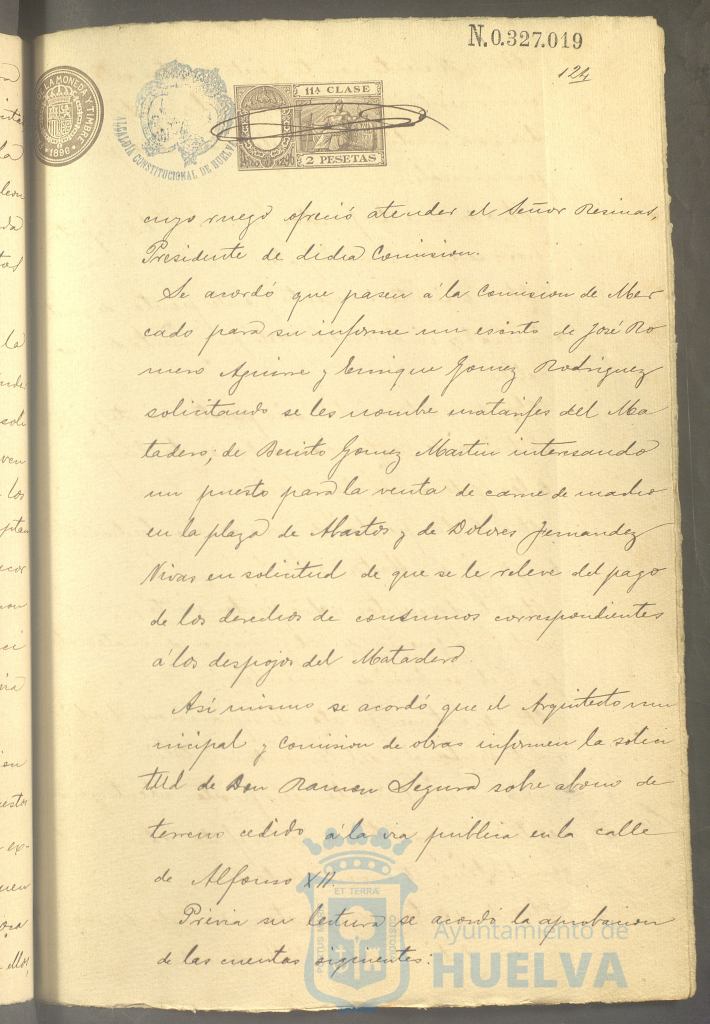 N.0.327.019
124
DE LA MONEDA Y TIMBRE
1896
ALCALDIA CONSTITUCIONAL DE HUELVA
11ª CLASE
2 PESETAS
cuyo ruego ofreció atender el Señor Resinas,
Presidente de dicha Comision.
Se acordó que pasen á la Comision de Mer
cado para su informe un escrito de José Ro
mero Aguirre y Enrique Gomez Rodriguez
solicitando se les nombre matarifes del Ma
tadero; de Benito Gomez Martin interesando
un puesto para la venta de carne de macho
en la plaza de Abastos y de Dolores Fernandez
Vivas en solicitud de que se le releve del pago
de los derechos de consumos correspondientes
á los despojos del Matadero.
Así mismo se acordó que el Arquitecto mu
nicipal y Comision de obras informen la solici
tud de Don Ramon Segura sobre abono de
terreno cedido á la via publica en la calle
de Alfonso XII.
Previa su lectura se acordó la aprobacion
de las cuentas siguientes:
ET TERRÆ
PORTUS
CUSTODIA
Ayuntamiento de
HUELVA